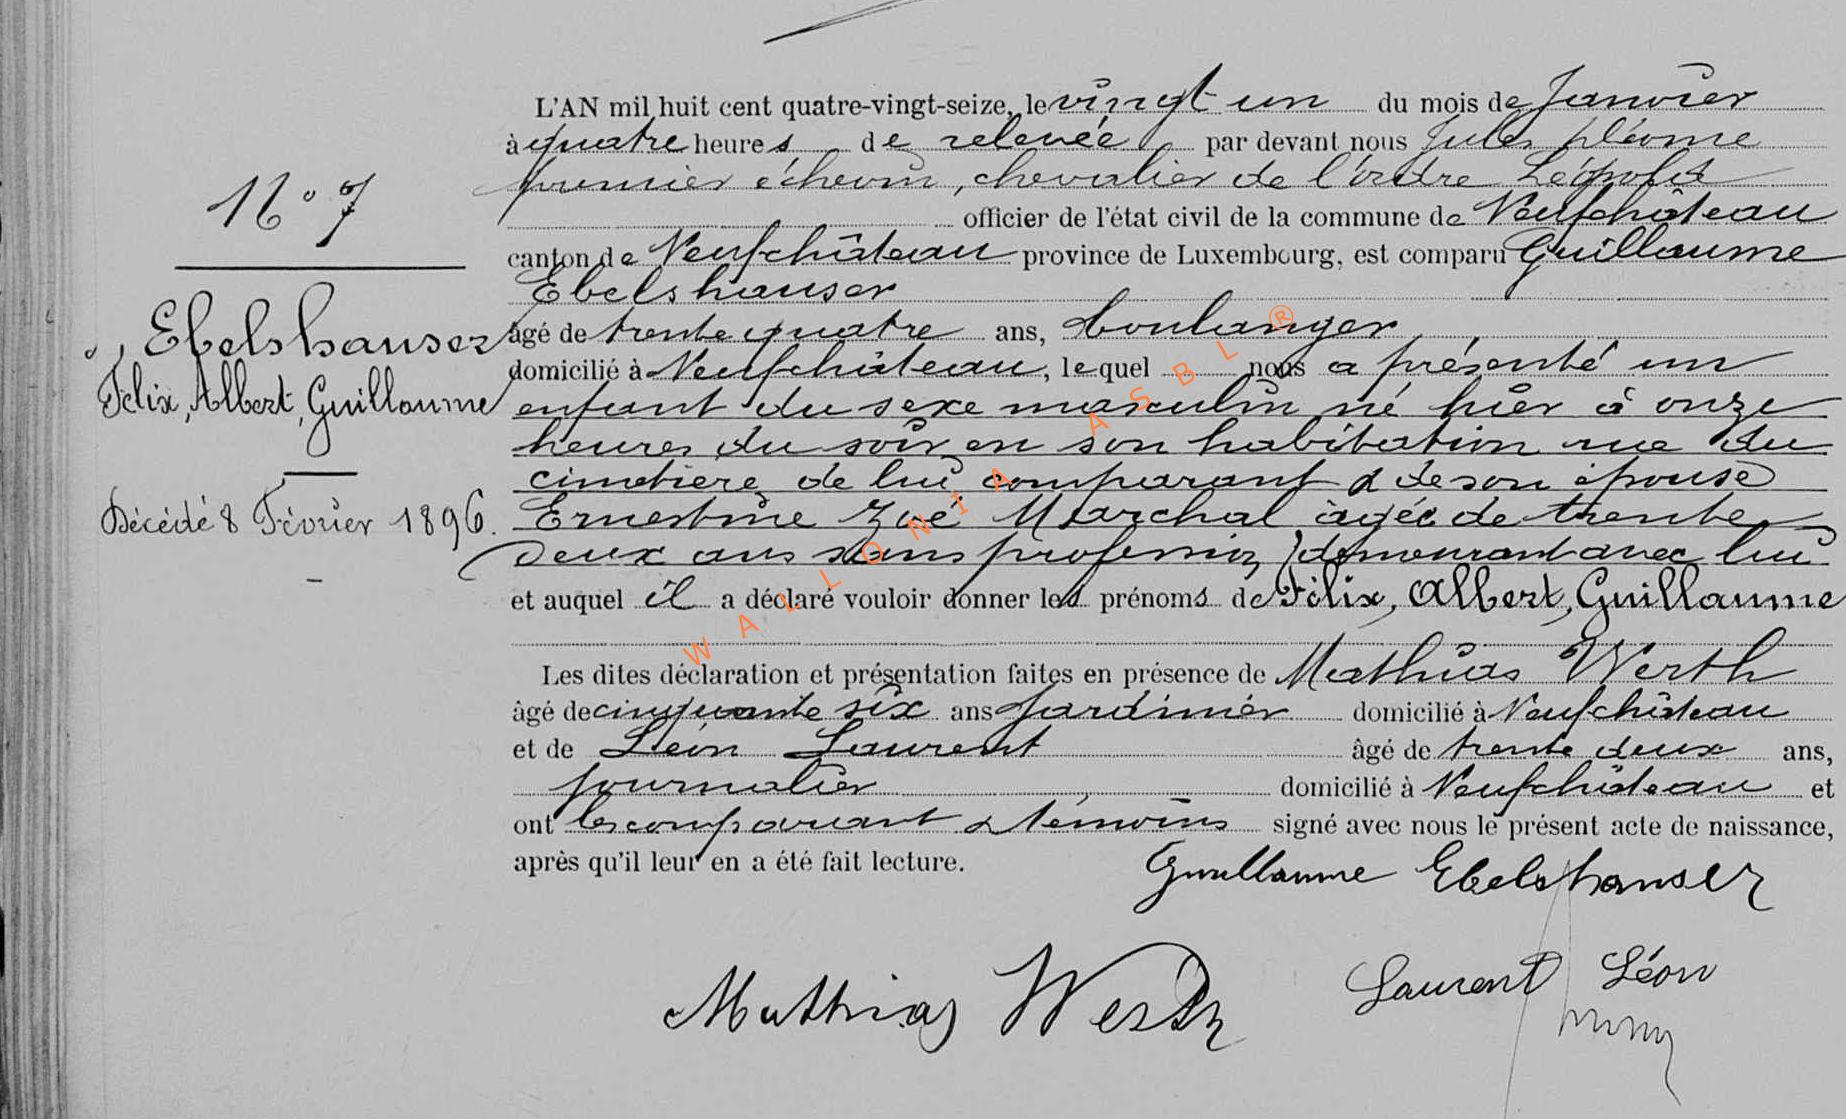 N° 7
Ebelshauser
Félix, Albert, Guillaume
Décédé 8 Février 1896.
L'AN mil huit cent quatre-vingt-seize, le vingt un du mois de Janvier
à quatre heures de relevée par devant nous Jules
premier échevin, chevalier de l'ordre Léopold
officier de l'état civil de la commune de Neufchâteau
canton de Neufchâteau province de Luxembourg, est comparu Guillaume
Ebelshauser
âgé de trente quatre ans, boulanger
domicilié à Neufchâteau, lequel nous a présenté un
enfant du sexe masculin né hier à onze
heures du soir en son habitation rue du
cimetière de lui comparant & de son épouse
Ernestine Zoé Marchal âgée de trente
deux ans sans profession demeurant avec lui
et auquel il a déclaré vouloir donner les prénoms de Félix, Albert, Guillaume
Les dites déclaration et présentation faites en présence de Mathias Werth
âgé de cinquante six ans jardinier domicilié à Neufchâteau
et de Léon Laurent âgé de trente deux ans,
journalier domicilié à Neufchâteau et
ont les comparant & témoins signé avec nous le présent acte de naissance,
après qu'il leur en a été fait lecture.
Guillaume Ebelshauser
Mathias Werth
Laurent Léon
WALLONIA ASBL ®